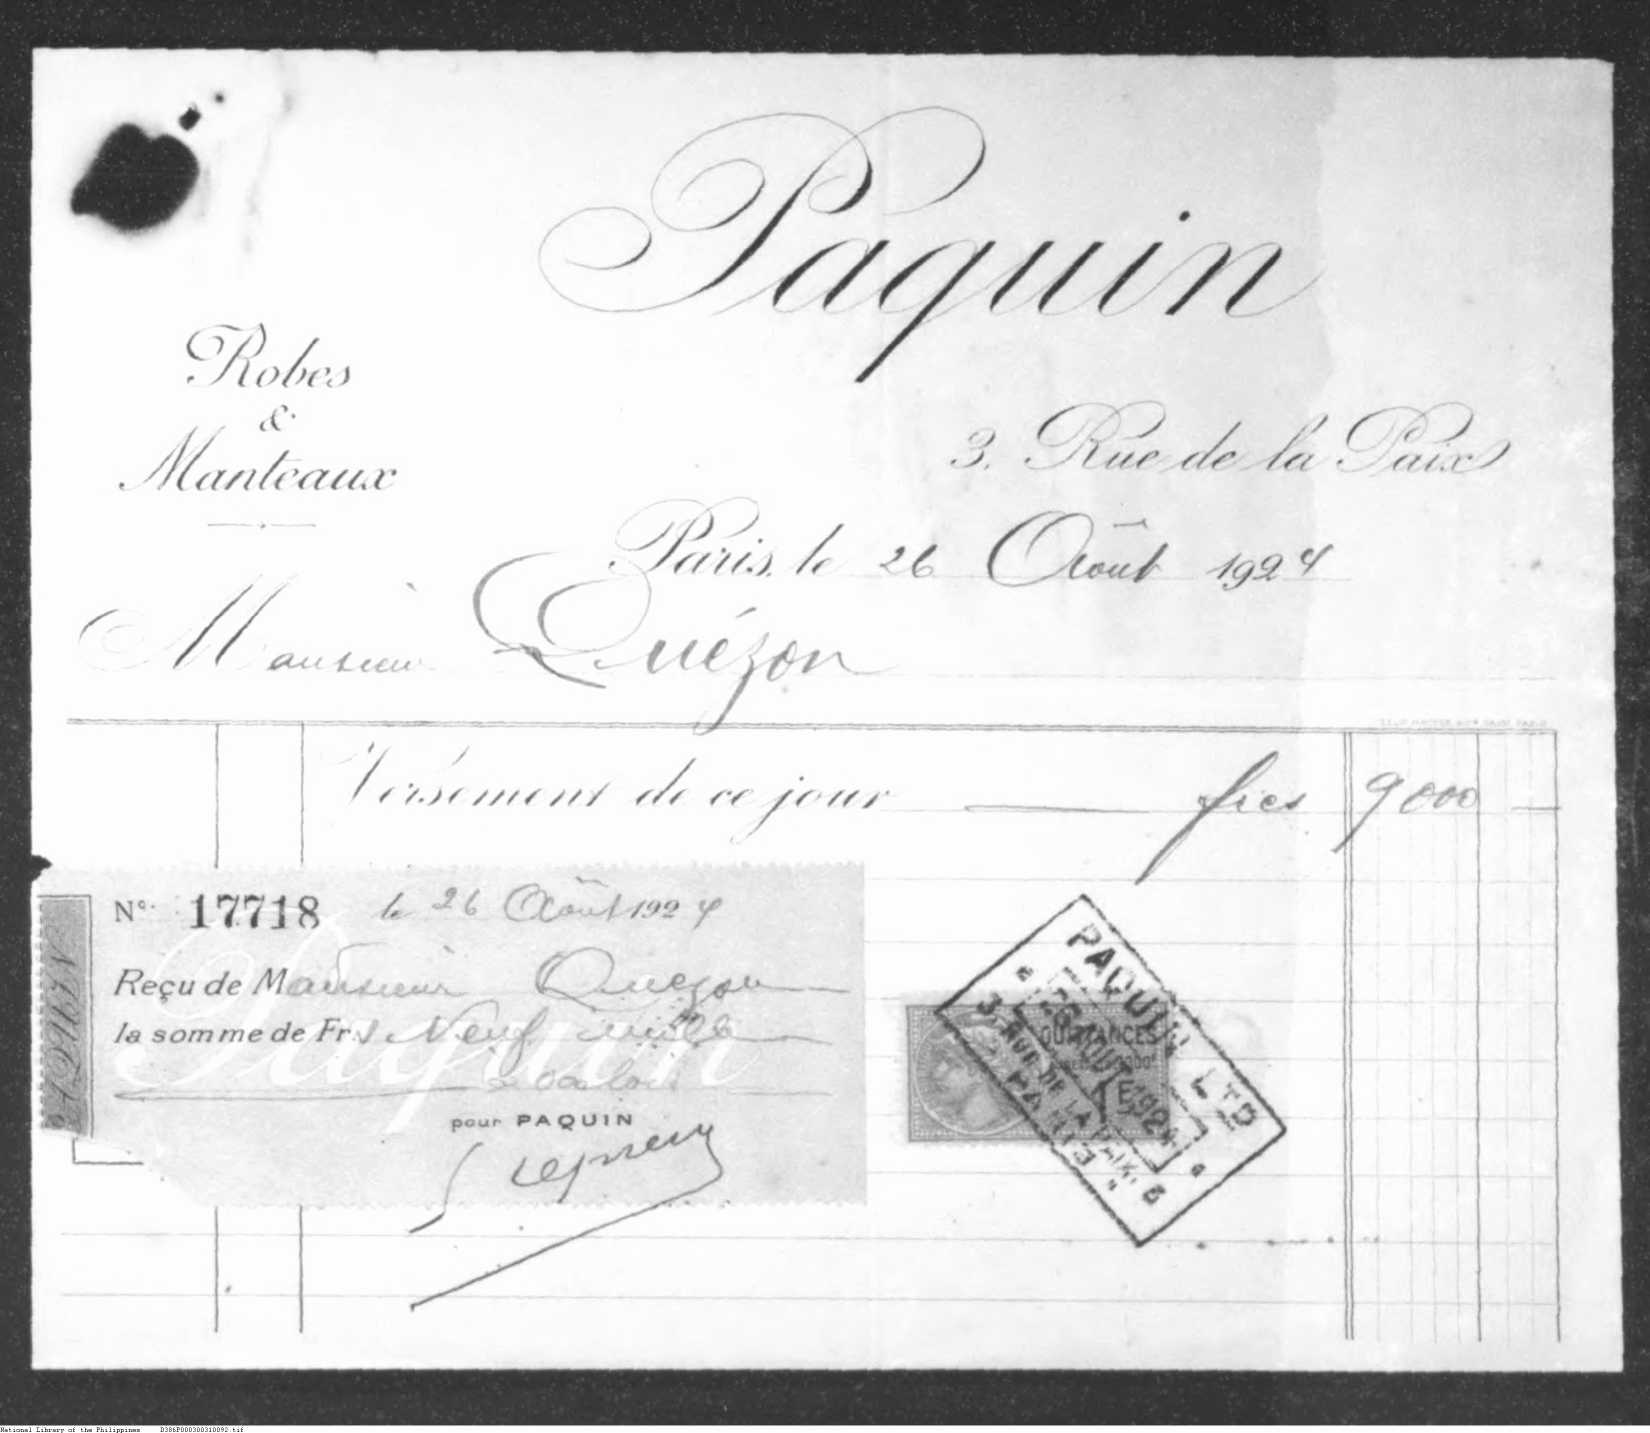 Paquin
Robes
&
Manteaux
3. Rue de la Paix
Paris, le 26 Août 1924
Monsieur Quézon
Versement de ce jour — frcs 9000 —
N° 17718 le 26 Août 1924
PAQUIN
Reçu de Monsieur Quezon
la somme de Frs Neuf mille
à valoir
pour PAQUIN
QUITTANCES
PAQUIN LTD
26 AOUT 1924
3, RUE DE LA PAIX, 3
PARIS
National Library of the Philippines D386P000300310092.tif